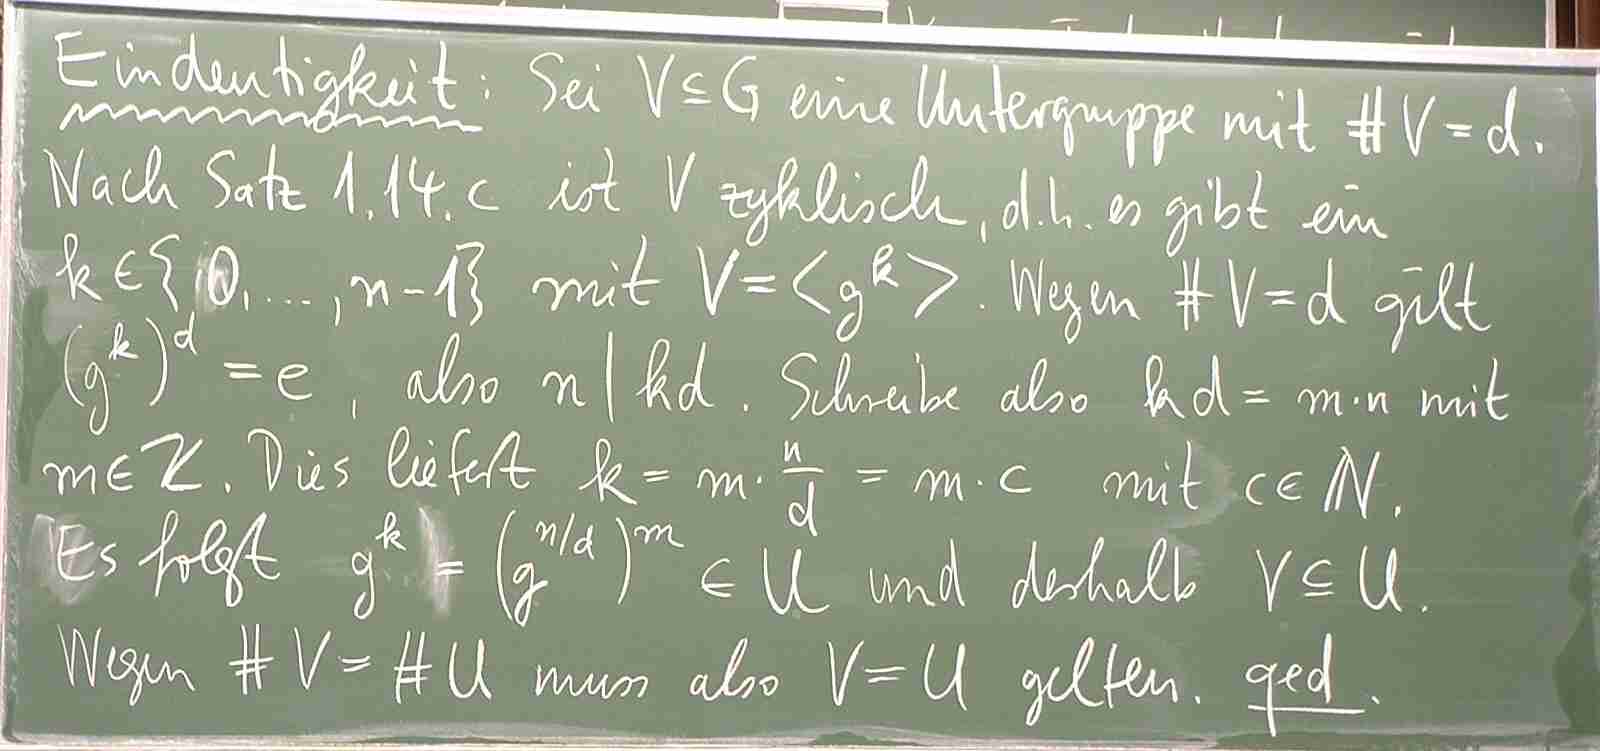 Eindeutigkeit: Sei V ⊆ G eine Untergruppe mit # V = d.
Nach Satz 1.14.c ist V zyklisch, d.h. es gibt ein
k ∈ {0, ..., n-1} mit V = <g^k>. Wegen # V = d gilt
(g^k)^d = e, also n | kd. Schreibe also kd = m·n mit
m ∈ ℤ. Dies liefert k = m · n/d = m · c mit c ∈ ℕ.
Es folgt g^k = (g^{n/d})^m ∈ U und deshalb V ⊆ U.
Wegen # V = # U muss also V = U gelten. qed.